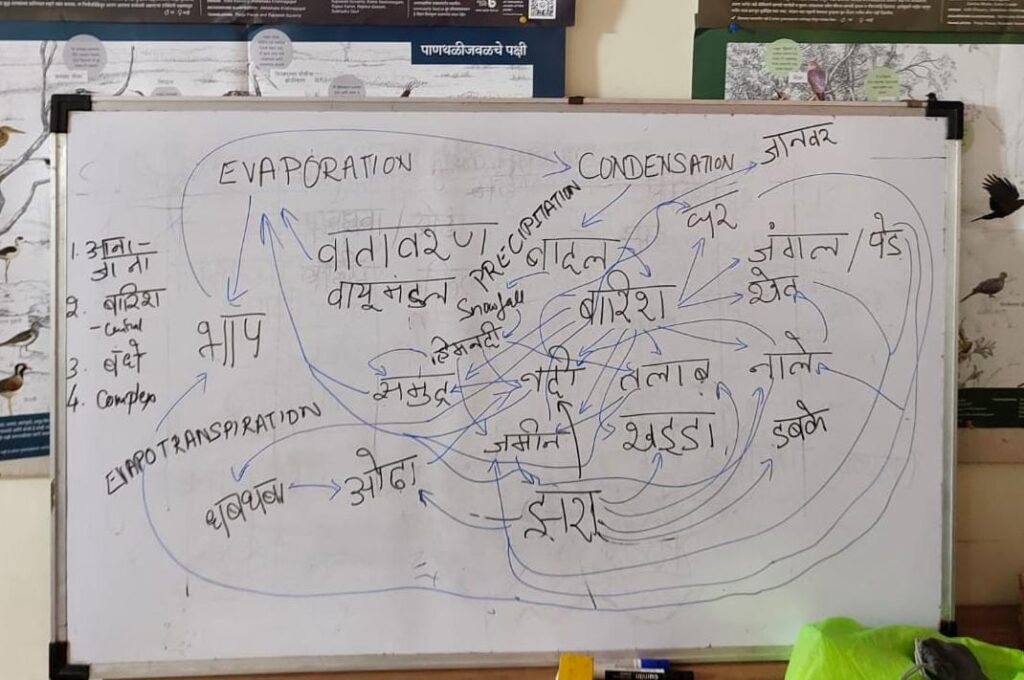 पाणथळीजवळचे पक्षी
EVAPORATION
CONDENSATION
जानवर
PRECIPITATION
घर
1. आना -
जाना
2. बारिश
- Central
3. बंधे
4. Complex
वातावरण
वायूमंडल
बादल
Snowfall
हिमनदी
बारिश
जंगल / पेड़
खेत
भाप
समुद्र
नदी
तलाब
नाले
EVAPOTRANSPIRATION
जमीन
खड्डा
डबके
धबधबा
ओढ़ा
झरा